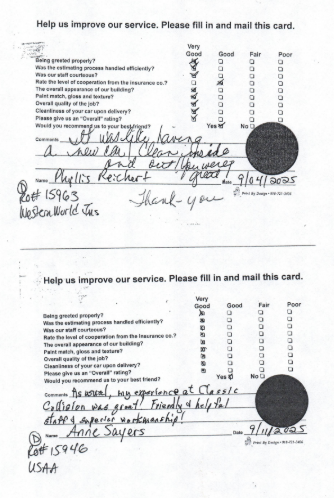 Help us improve our service. Please fill in and mail this card.
Very
Good Good Fair Poor
Being greeted properly?
Was the estimating process handled efficiently?
Was our staff courteous?
Rate the level of cooperation from the insurance co.?
The overall appearance of our building?
Paint match, gloss and texture?
Overall quality of the job?
Cleanliness of your car upon delivery?
Please give us an "Overall" rating?
Would you recommend us to your best friend? Yes No
Comments It was like having
a new car / Clean inside
and out / You were
great
Name Phyllis Reichert Date 9/04/2025
Thank-you
Ro# 15963
Western World Ins
Help us improve our service. Please fill in and mail this card.
Very
Good Good Fair Poor
Being greeted properly?
Was the estimating process handled efficiently?
Was our staff courteous?
Rate the level of cooperation from the insurance co.?
The overall appearance of our building?
Paint match, gloss and texture?
Overall quality of the job?
Cleanliness of your car upon delivery?
Please give us an "Overall" rating?
Would you recommend us to your best friend? Yes No
Comments As usual, my experience at Classic
Collision was great! Friendly & helpful
staff & superior workmanship!
Name Anne Sayers Date 9/11/2025
D
Ro# 15946
USAA